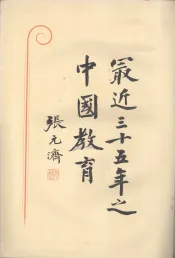 最近三十五年之
中國教育
張元濟